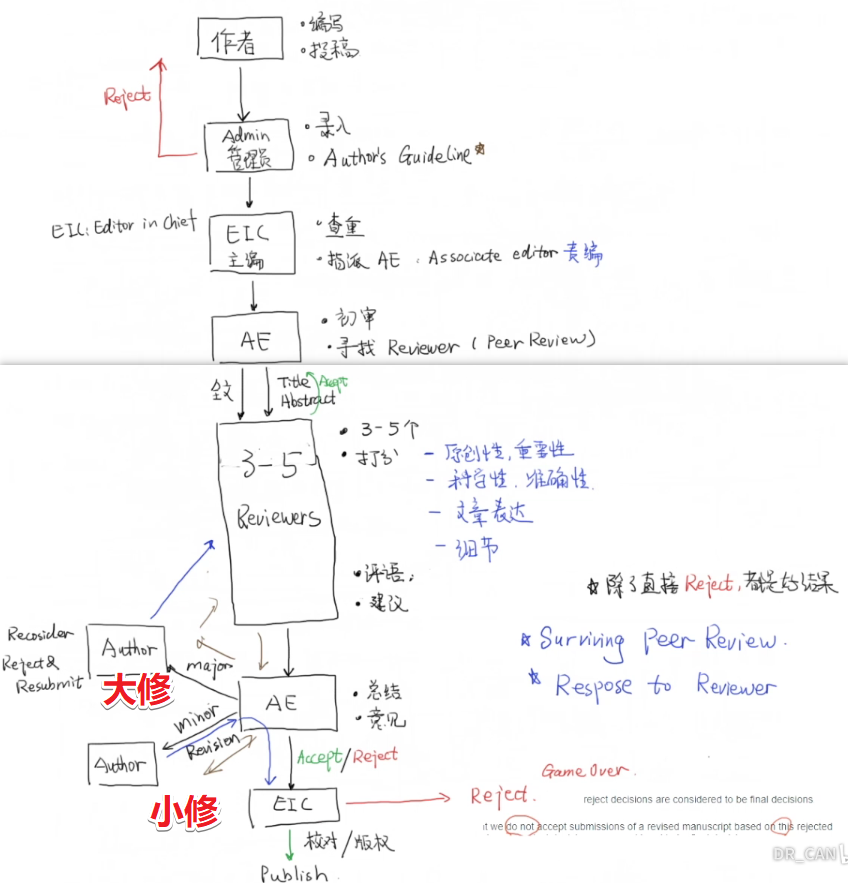 作者
• 编写
• 投稿
Reject
Admin
管理员
• 录入
• Author's Guideline
EIC: Editor in Chief
EIC
主编
• 查重
• 指派 AE . Associate editor 责编
AE
• 初审
• 寻找 Reviewer ( Peer Review )
全文
Title
Abstract
Accept
3-5
Reviewers
• 3-5个
• 打分
- 原创性, 重要性
- 科学性. 准确性.
- 文章表达
- 细节
• 评语;
• 建议
☆ 除了直接 Reject, 都是好结果
☆ Surviving Peer Review.
☆ Respose to Reviewer
Recosider
Reject &
Resubmit
Author
大修
major
AE
• 总结
• 意见
minor
Revision
Author
小修
Accept/Reject
EIC
Reject.
Game Over.
reject decisions are considered to be final decisions
t we do not accept submissions of a revised manuscript based on this rejected
校对/版权
Publish.
DR_CAN